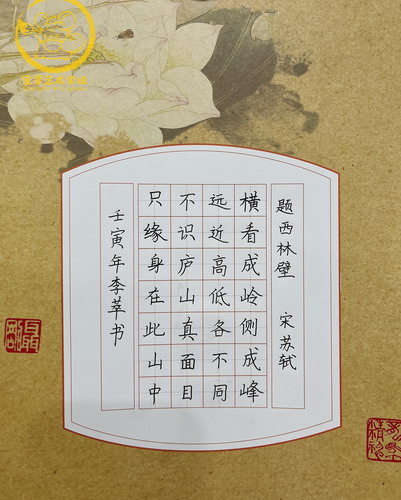 题西林壁 宋苏轼
横看成岭侧成峰
远近高低各不同
不识庐山真面目
只缘身在此山中
壬寅年李萃书